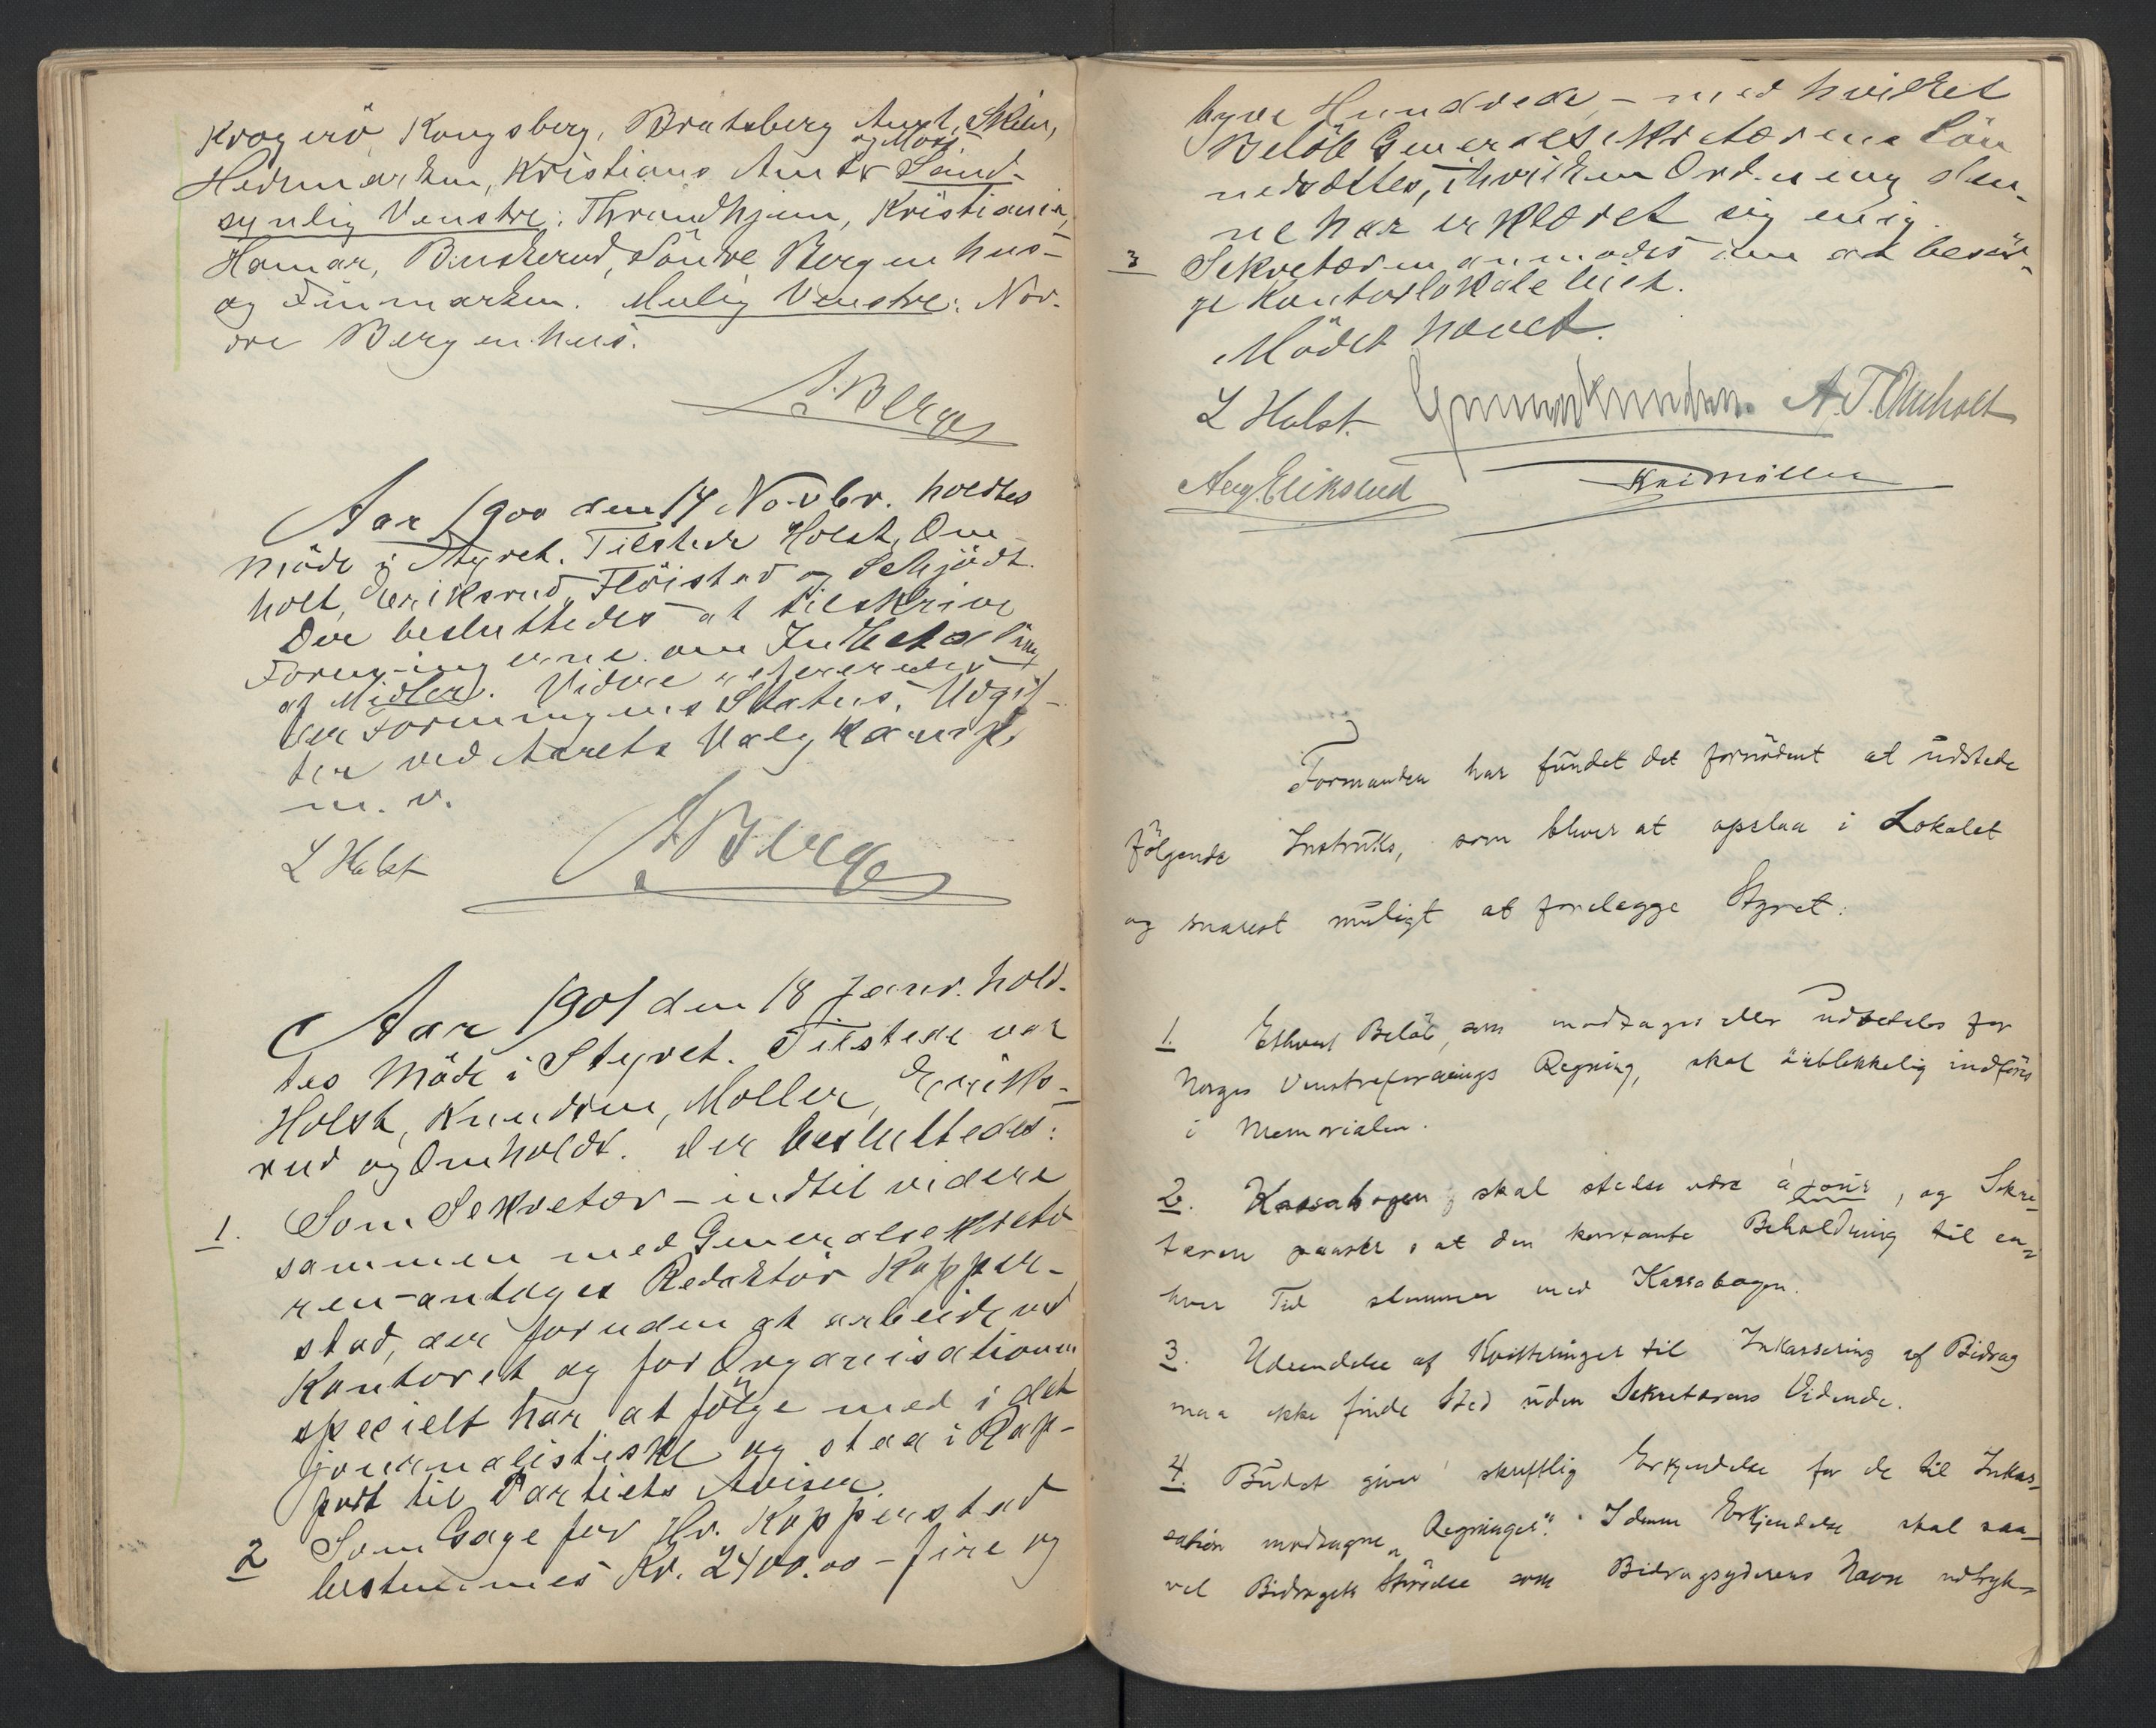 Kragerö, Kongsberg, Bratsberg Amt, Skien,
og Moss.
Hedemarken, Kristians Amt. Sand-
synlig Venstre: Throndhjem, Kristiania,
Hamar, Buskerud, Söndre Bergenhus-
og Finmarken. Mulig Venstre: Nor-
dre Bergenhus.
A Berge
Aar 1900 den 14 Novbr. holdtes
Möde i Styret. Tilstede Holst, Om-
holt, Eriksrud, Flöistad og Schjödt.
Der besluttedes at tilskrive
Foreningerne om Indbetaling
af Midler. Videre refereredes
Foreningens Status, Udgif-
ter ved Aarets Valgkamp
m. v.
L Holst A Berge
Aar 1901 den 18 Janr. hold-
tes Möde i Styret. Tilstede var
Holst, Knudsen, Møller, Eriks-
rud og Omholdt. Der besluttedes:
1. Som Sekretær – indtil videre
sammen med Generalsekretæ-
ren – antages Redaktör Kopper-
stad, der foruden at arbeide ved
Kontoret og for Organisationen
specielt har at fölge med i det
journalistiske og staa i Rap-
port til Partiets Aviser.
2 Som Gage for Hr. Kopperstad
bestemmes Kr. 2400.00 – fire og
tyve Hundrede – med hvilket
Belöb Generalsekretærens Lön
nedsættes, i hvilken Ordning den-
ne har erklæret sig enig.
3 Sekretæren anmodes om at besör-
ge Kontorlokale leiet.
Mödet hævet.
L Holst. Gunnar Knudsen. A. T. Omholt
Aug. Eriksrud Kai Møller
Formanden har fundet det fornödent at udstede
fölgende Instruks, som bliver at opslaa i Lokalet
og snarest muligt at forelægge Styret:
1. Ethvert Belöb, som modtages eller udbetales for
Norges Venstreforenings Regning, skal öieblikkelig indföres
i Memorialen.
2. Kassabogen skal stedse være à jour, og Sekre-
tæren paaser, at den kontante Beholdning til en-
hver Tid stemmer med Kassabogen.
3. Udsendelse af Kvitteringer til Inkassering af Bidrag
maa ikke finde Sted uden Sekretærens Vidende.
4. Budet giver skriftlig Erkjendelse for de til Inkas-
sation modtagne „Regninger“. I denne Erkjendelse skal saa-
vel Bidragets Störrelse som Bidragsyderens Navn udtryk-